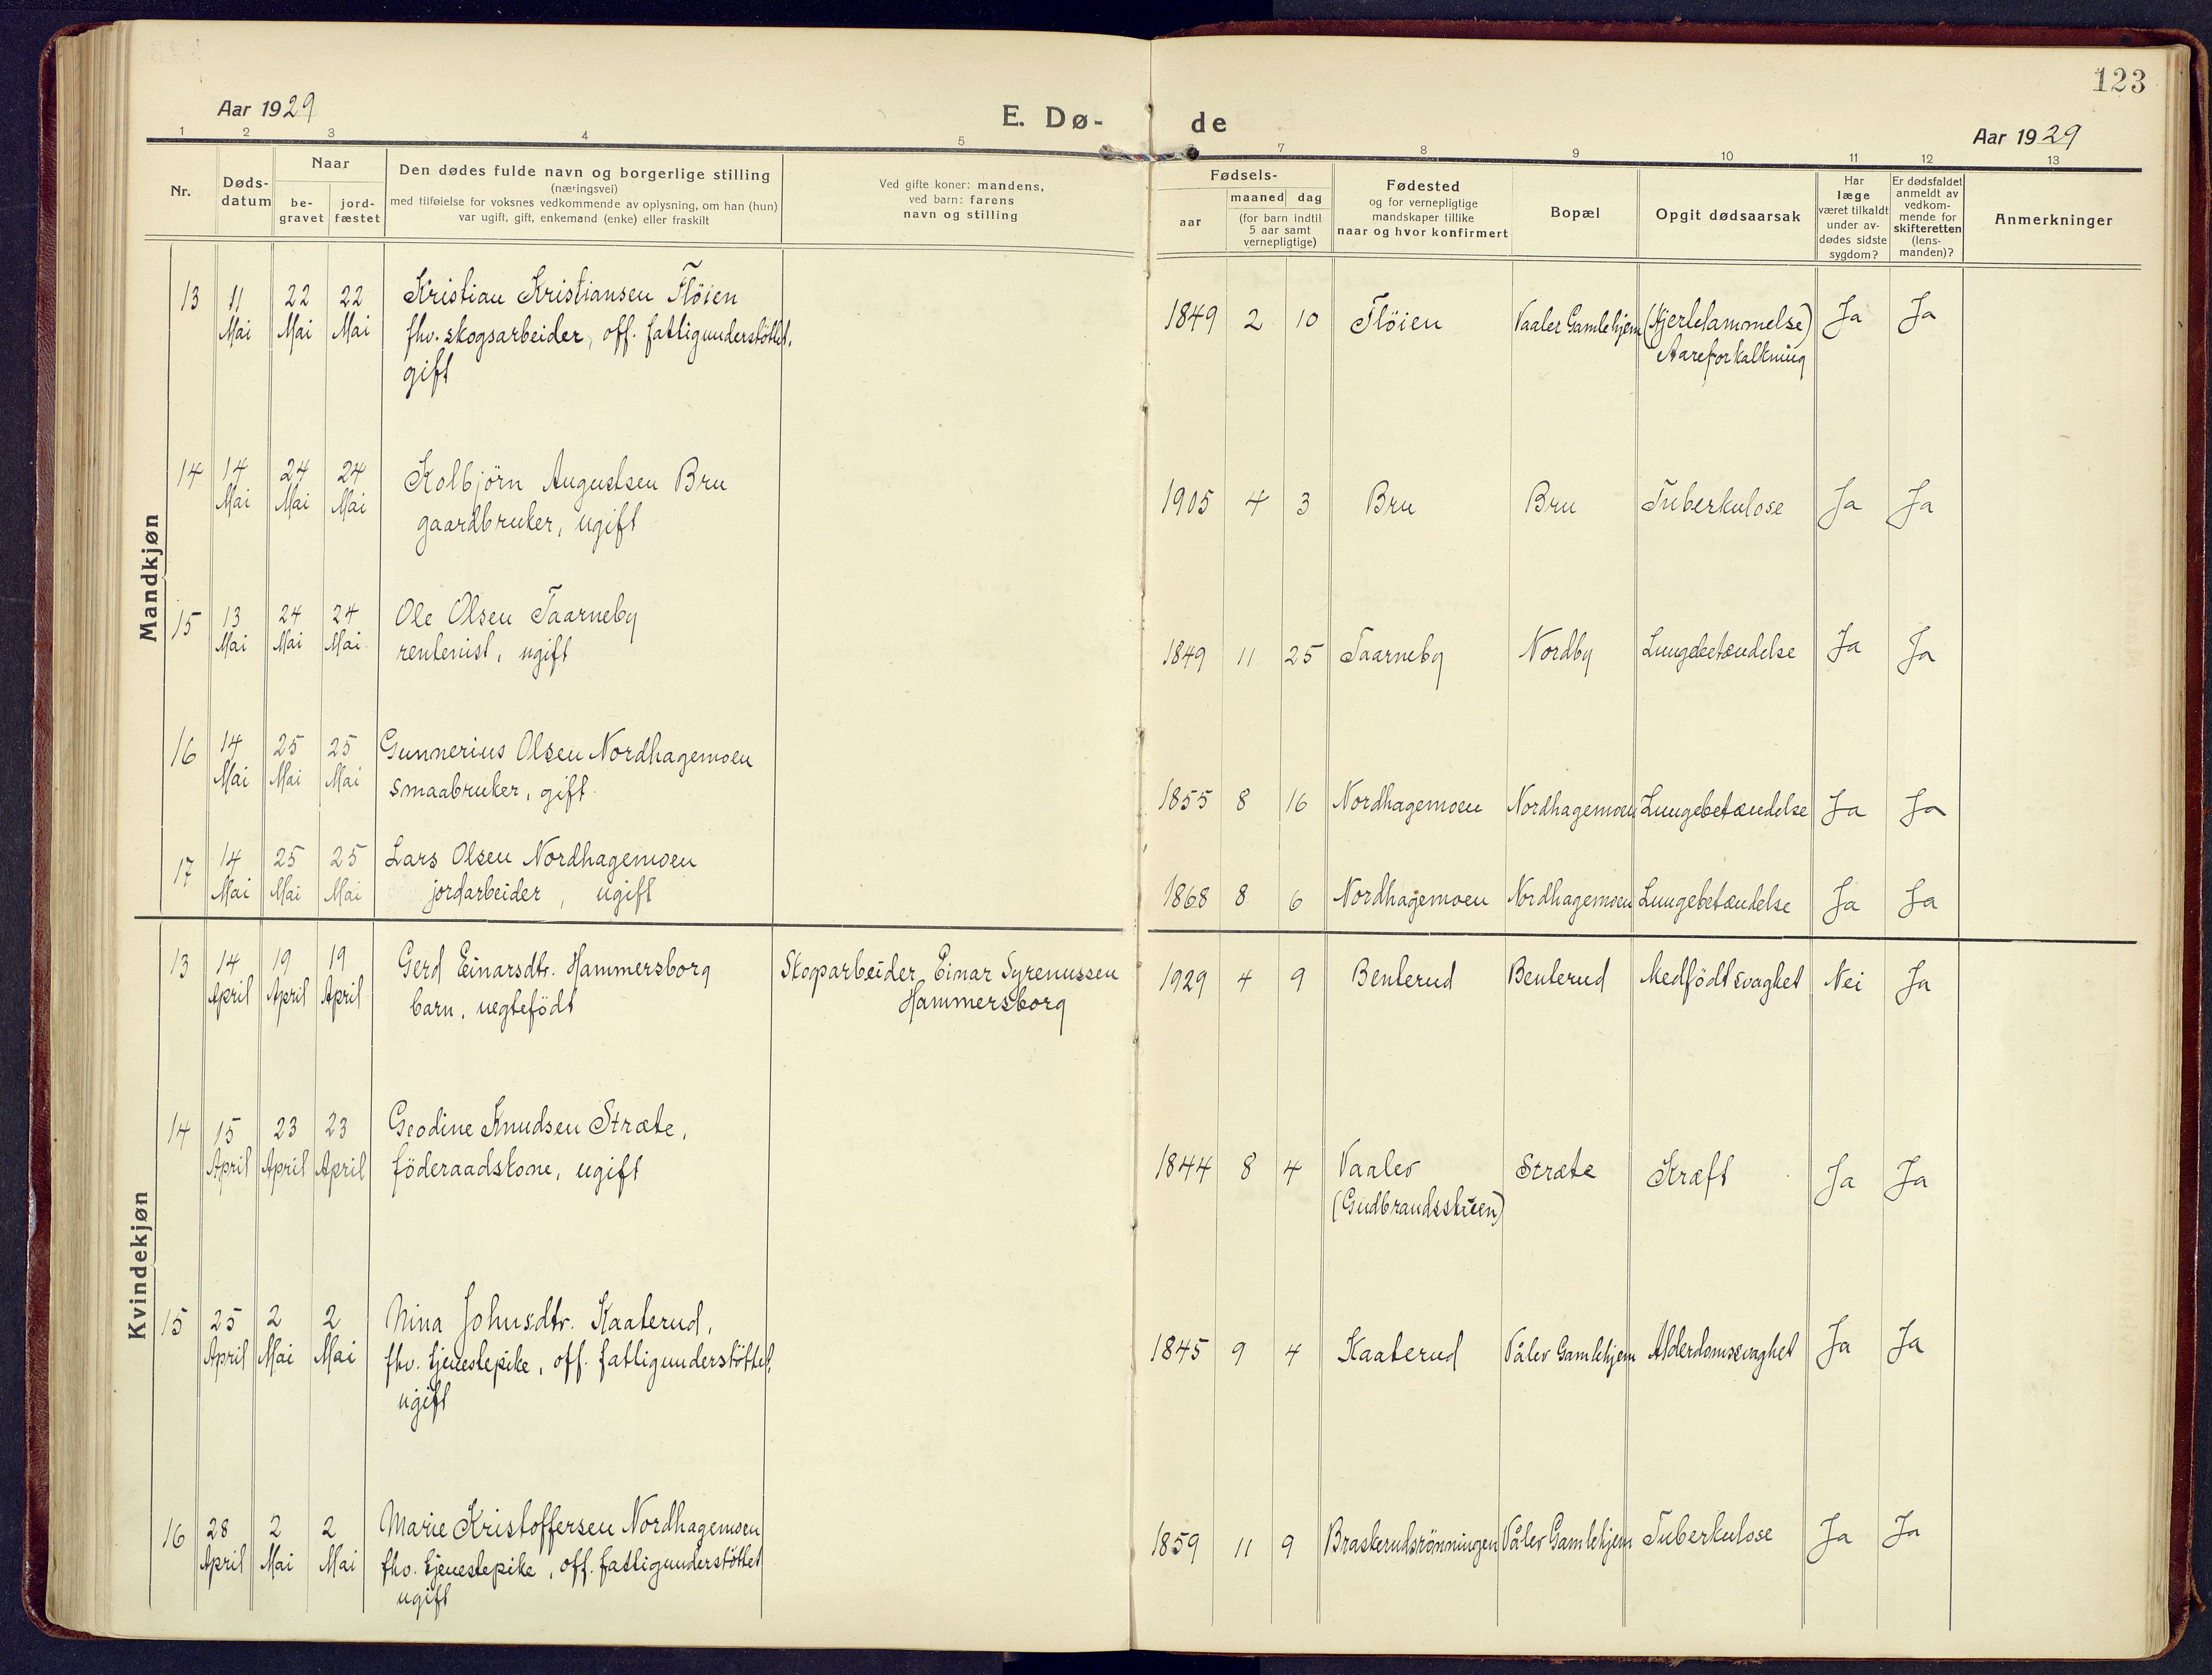 123
Aar 1929
E. Dø-
de
Aar 1929
1 2 3 4 5 7 8 9 10 11 12 13
Nr.
Døds-
datum
Naar
be-
gravet
jord-
fæstet
Den dødes fulde navn og borgerlige stilling
(næringsvei)
med tilføielse for voksnes vedkommende av oplysning, om han (hun)
var ugift, gift, enkemand (enke) eller fraskilt
Ved gifte koner: mandens,
ved barn: farens
navn og stilling
Fødsels-
aar
maaned dag
(for barn indtil
5 aar samt
vernepligtige)
Fødested
og for vernepligtige
mandskaper tillike
naar og hvor konfirmert
Bopæl
Opgit dødsaarsak
Har
læge
været tilkaldt
under av-
dødes sidste
sygdom?
Er dødsfaldet
anmeldt av
vedkom-
mende for
skifteretten
(lens-
manden)?
Anmerkninger
Mandkjøn
13 11 22 22 Kristian Kristiansen Fløien 1849 2 10 Fløien Vaaler Gamlehjem (Hjertelammelse) Ja Ja
Mai Mai Mai fhv. skogsarbeider, off. fattigunderstöttet, Aareforkalkning
gift
14 14 24 24 Kolbjörn Augustsen Bru 1905 4 3 Bru Bru Tuberkulose Ja Ja
Mai Mai Mai gaardbruker, ugift
15 13 24 24 Ole Olsen Taarneby 1849 11 25 Taarneby Nordby Lungebetændelse Ja Ja
Mai Mai Mai rentenist, ugift
16 14 25 25 Gunnerius Olsen Nordhagemoen 1855 8 16 Nordhagemoen Nordhagemoen Lungebetændelse Ja Ja
Mai Mai Mai smaabruker, gift
17 14 25 25 Lars Olsen Nordhagemoen 1868 8 6 Nordhagemoen Nordhagemoen Lungebetændelse Ja Ja
Mai Mai Mai jordarbeider, ugift
Kvindekjøn
13 14 19 19 Gerd Einarsdtr. Hammersborg Skogarbeider Einar Syrenussen 1929 4 9 Benterud Benterud Medfödt svaghet Nei Ja
April April April barn, uegtefödt Hammersborg
14 15 23 23 Geodine Knudsen Stræte, 1844 8 4 Vaaler Stræte Kræft Ja Ja
April April April föderaadskone, ugift (Gudbrandsstuen)
15 25 2 2 Nina Johnsdtr. Kaaterud, 1845 9 4 Kaaterud Våler Gamlehjem Alderdomssvaghet Ja Ja
April Mai Mai fhv. tjenestepike, off. fattigunderstöttet,
ugift
16 28 2 2 Marie Kristoffersen Nordhagemoen 1859 11 9 Braskerudsrönningen Våler Gamlehjem Tuberkulose Ja Ja
April Mai Mai fhv. tjenestepike, off. fattigunderstöttet
ugift